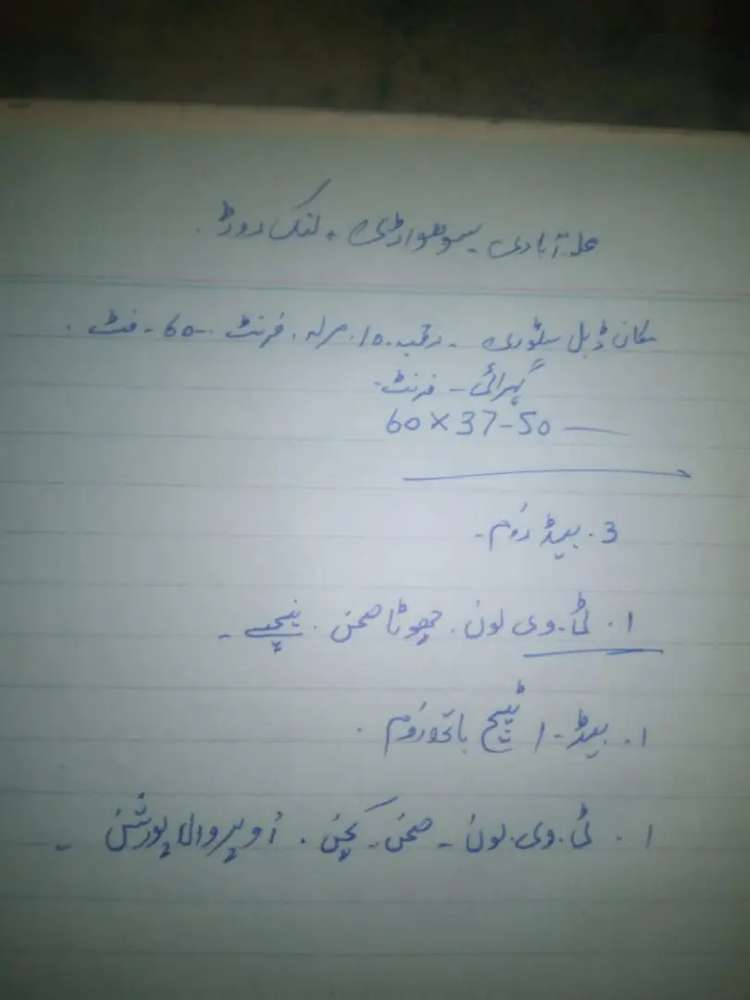 محلہ آبادی ۔ لنک روڈ ۔
مکان ڈبل سٹوری ۔ رقبہ ۔ 10 مرلہ ۔ فرنٹ ۔ 60 ۔ فٹ ۔
گہرائی ۔ فرنٹ ۔
60 × 37-50
3 ۔ بیڈ رُوم ۔
1 ۔ ٹی ۔ وی لون ۔ چھوٹا صحن ۔ نیچے ۔
1 ۔ بیڈ ۔ اٹیچ باتھ رُوم ۔
1 ۔ ٹی ۔ وی ۔ لون ۔ صحن ۔ کچن ۔ اُوپر والا پورشن ۔